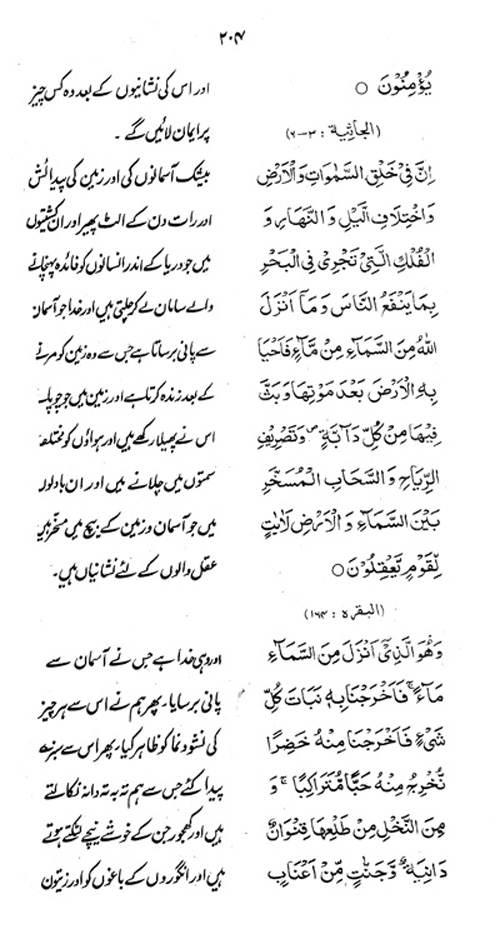 ۲۰۴
يُؤْمِنُوْنَ ○
(الجاثية : ۳-۶)
اِنَّ فِيْ خَلْقِ السَّمٰوَاتِ وَالْاَرْضِ
وَاخْتِلَافِ الَّيْلِ وَ النَّهَارِ وَ
الْفُلْكِ الَّتِيْ تَجْرِيْ فِي الْبَحْرِ
بِمَا يَنْفَعُ النَّاسَ وَ مَآ اَنْزَلَ
اللّٰهُ مِنَ السَّمَآءِ مِنْ مَّآءٍ فَاَحْيَا
بِهِ الْاَرْضَ بَعْدَ مَوْتِهَا وَ بَثَّ
فِيْهَا مِنْ كُلِّ دَآبَّةٍ ص وَّتَصْرِيْفِ
الرِّيَاحِ وَ السَّحَابِ الْمُسَخَّرِ
بَيْنَ السَّمَآءِ وَ الْاَرْضِ لَاٰيٰتٍ
لِّقَوْمٍ يَّعْقِلُوْنَ ○
(البقره : ۱۶۴)
وَهُوَ الَّذِيْ اَنْزَلَ مِنَ السَّمَآءِ
مَآءً ۚ فَاَخْرَجْنَا بِهٖ نَبَاتَ كُلِّ
شَيْءٍ فَاَخْرَجْنَا مِنْهُ خَضِرًا
نُّخْرِجُ مِنْهُ حَبًّا مُّتَرَاكِبًا ۚ وَ
مِنَ النَّخْلِ مِنْ طَلْعِهَا قِنْوَانٌ
دَانِيَةٌ وَّ جَنّٰتٍ مِّنْ اَعْنَابٍ
اور اس کی نشانیوں کے بعد وہ کس چیز
پر ایمان لائیں گے ۔
بیشک آسمانوں کی اور زمین کی پیدائش
اور رات دن کے الٹ پھیر اور ان کشتیوں
میں جو دریا کے اندر انسانوں کو فائدہ پہنچانے
والے سامان لے کر چلتی ہیں اور خدا جو آسمان
سے پانی برساتا ہے جس سے وہ زمین کو مرنے
کے بعد زندہ کرتا ہے اور زمین میں جو چوپائے
اس نے پھیلا رکھے ہیں اور ہواؤں کو مختلف
سمتوں میں چلانے میں اور ان بادلوں
میں جو آسمان و زمین کے بیچ میں مسخر ہیں
عقل والوں کے لئے نشانیاں ہیں۔
اور وہی خدا ہے جس نے آسمان سے
پانی برسایا۔ پھر ہم نے اس سے ہر چیز
کی نشوونما کو ظاہر کیا۔ پھر اس سے سبزے
پیدا کئے جس سے ہم تہ بہ تہ دانہ نکالتے
ہیں اور کھجور جن کے خوشے نیچے لٹکے ہوتے
ہیں اور انگوروں کے باغوں کو اور زیتون